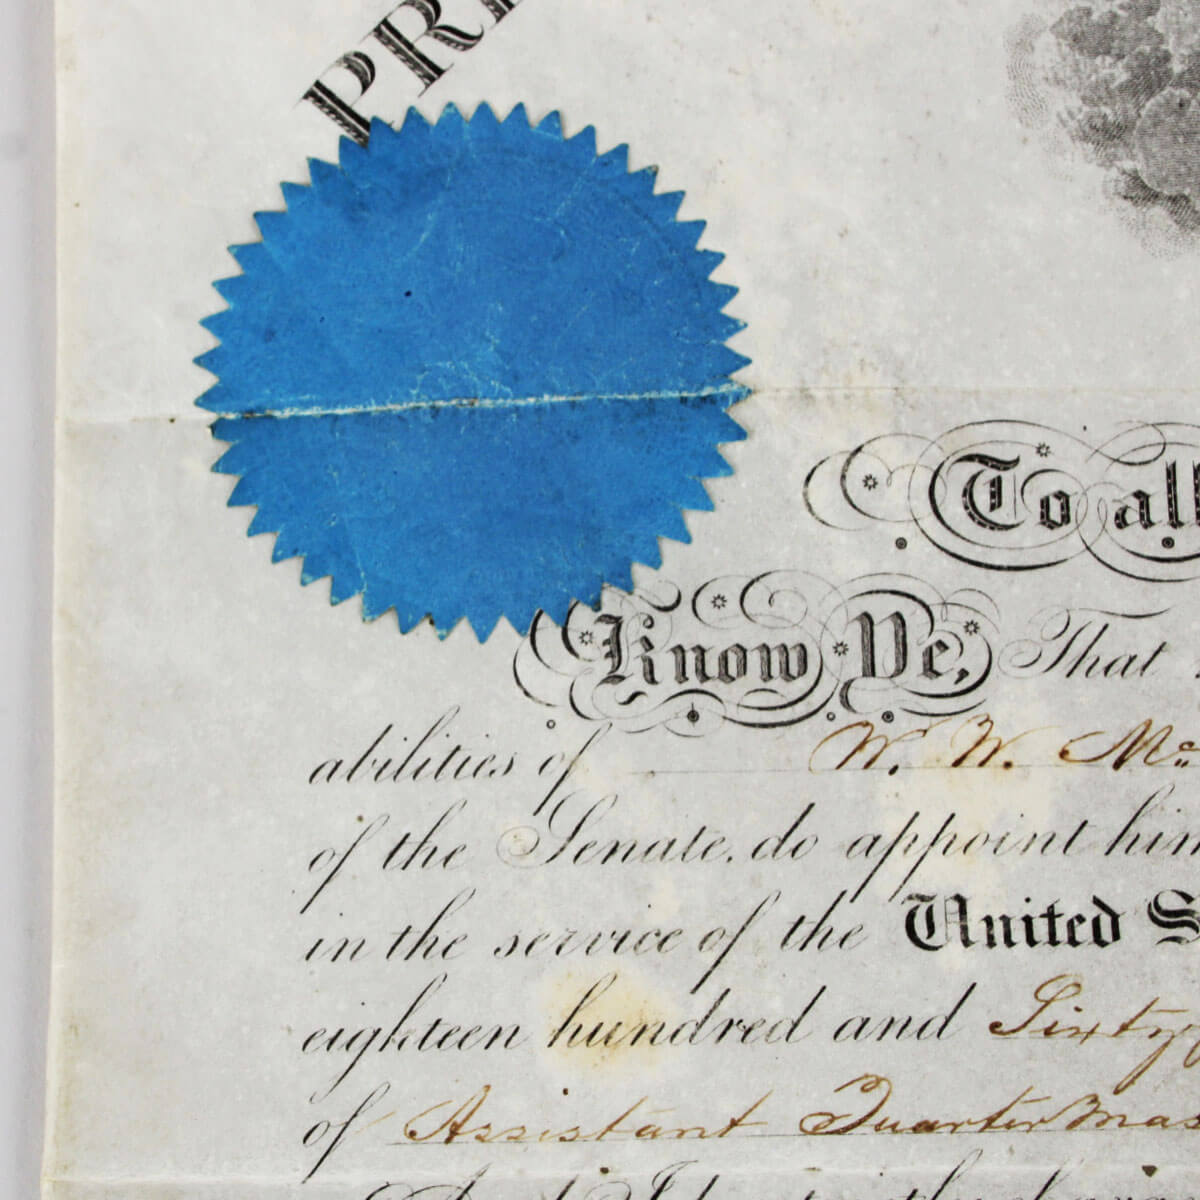 PRE
To all
Know Ye, That
abilities of W. W. Mc
of the Senate, do appoint him
in the service of the United S
eighteen hundred and Sixty
of Assistant Quartermas